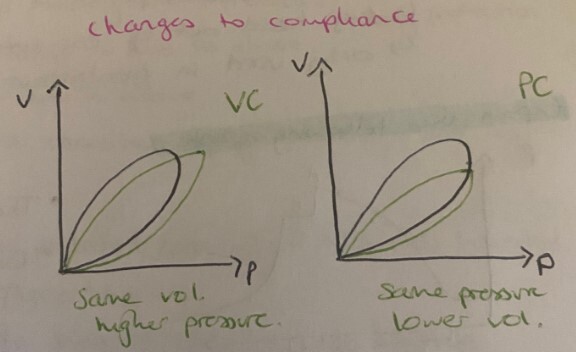 changes to compliance
V
VC
P
same vol.
higher pressure.
V
PC
P
same pressure
lower vol.